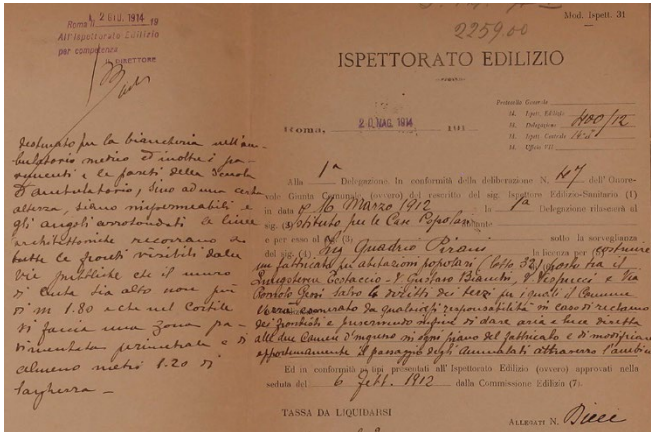 2 GIU. 1914
Roma li 19
All'Ispettorato Edilizio
per competenza
IL DIRETTORE
destinato per la biancheria nell'am-
bulatorio medico ed inoltre i pa-
vimenti e le pareti della Scuola
d'ambulatorio, sino ad una certa
altezza, siano impermeabili e
gli angoli arrotondati le linee
architettoniche ricorrano su
tutte le fronti visibili dalle
vie pubbliche che il muro
di cinta sia alto non più
di m 1.80 e che nel cortile
si faccia una zona pa-
vimentata perimetrale e di
almeno metri 1.20 di
larghezza —
225900
Mod. Ispett. 31
ISPETTORATO EDILIZIO
Protocollo Generale
N. Ispet. Edilizio
N. Delegazione 400/12
N. Ispet. Centrale
N. Ufficio VII
Roma, 20 MAG. 1914 191
Alla 1a Delegazione. In conformità della deliberazione N. 47 dell'Onore-
vole Giunta Comunale (ovvero) del rescritto del sig. Ispettore Edilizio-Sanitario (1)
in data 16 Marzo 1912 la 1a Delegazione rilascerà al
sig. (2) Istituto per le Case Popolari
e per esso al (3) sotto la sorveglianza
del sig. (4) Ing Quadrio Pirani la licenza per costruire
un fabbricato per abitazioni popolari (lotto 32) posto fra il
Lungotevere Testaccio - V Gustavo Bianchi, V Vespucci e Via
Romolo Gessi salvo i diritti dei terzi per i quali il Comune
verrà esonerato da qualsiasi responsabilità in caso di reclamo
dei frontisti e prescrivendo di dare aria e luce diretta
alle due Camere d'ingresso in ogni piano del fabbricato e di modificare
opportunamente il passaggio degli ammalati attraverso l'ambu
Ed in conformità ai tipi presentati all'Ispettorato Edilizio (ovvero) approvati nella
seduta del 6 Febb. 1912 dalla Commissione Edilizia (7).
TASSA DA LIQUIDARSI
ALLEGATI N. Dieci